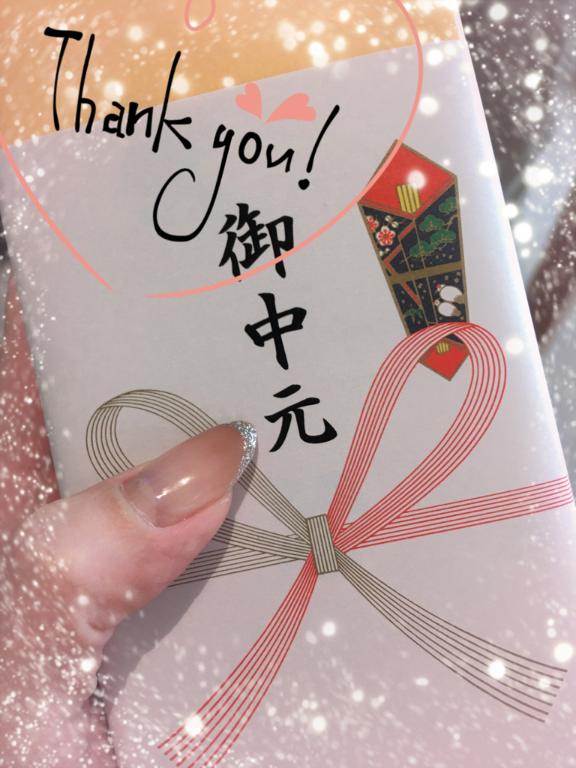 Thank you!
御中元